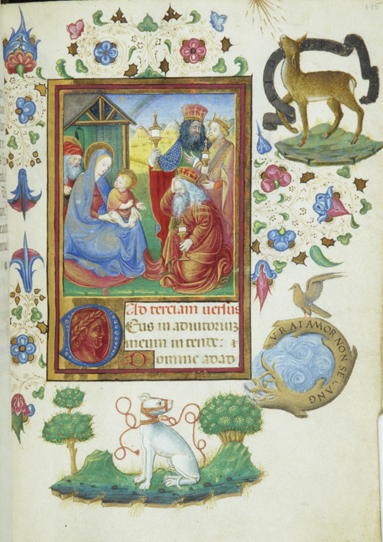 Ad terciam versus
Deus in adiutorium
meum intende:
Domine ad ad
VRAI AMOR NON SE CANG